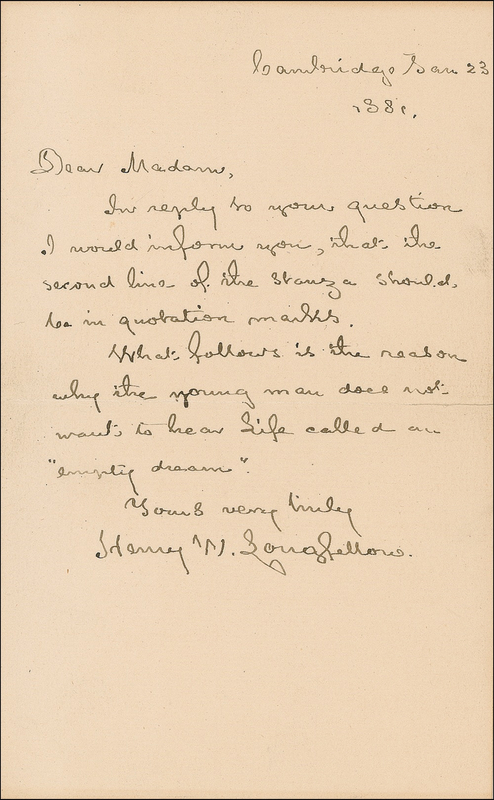 Cambridge Jan 23
1881.
Dear Madam,
In reply to your question
I would inform you, that the
second line of the stanza should
be in quotation marks.
What follows is the reason
why the young man does not
want to hear Life called an
"empty dream".
Yours very truly
Henry W. Longfellow.